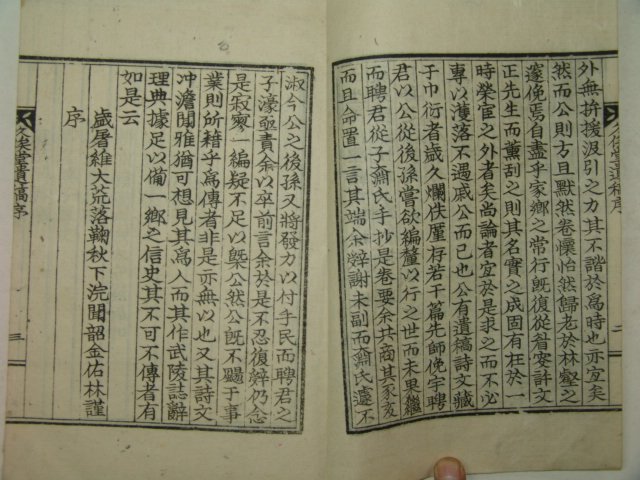 外無拚援汲引之力其不諧於爲時也亦宜矣
然而公則方且默然卷懷怡然歸老於林壑之
邃俛焉自盡乎家鄕之常行旣復從旨安許文
正先生而薰刻之則其名實之成固有在於一
時榮宦之外者矣尚論者宜於是求之而不必
專以濩落不遇戚公而已也公有遺稿詩文藏
子巾衍者歲久爛佚厪存若干篇先師俛宇聘
君以公從後孫嘗欲編釐以行之世而未果繼
而聘君從子翕氏手抄是卷要余共商其豕亥
而且命置一言其端余辤謝未副而翕氏遽不
淑今公之後孫又將發力以付手民而聘君之
子濠亟責余以卒前言余於是不忍復辤仍念
是寂寥一編疑不足以槩公然公旣不颺于事
業則所藉乎爲傳者非是亦無以也又其詩文
冲澹閒雅猶可想見其爲人而其作武陵誌辭
理典據足以備一鄕之信史其不可不傳者有
如是云
歲屠維大荒落鞠秋下浣聞韶金佑林謹
序
久俟堂遺稿序
二
久俟堂遺稿序
三